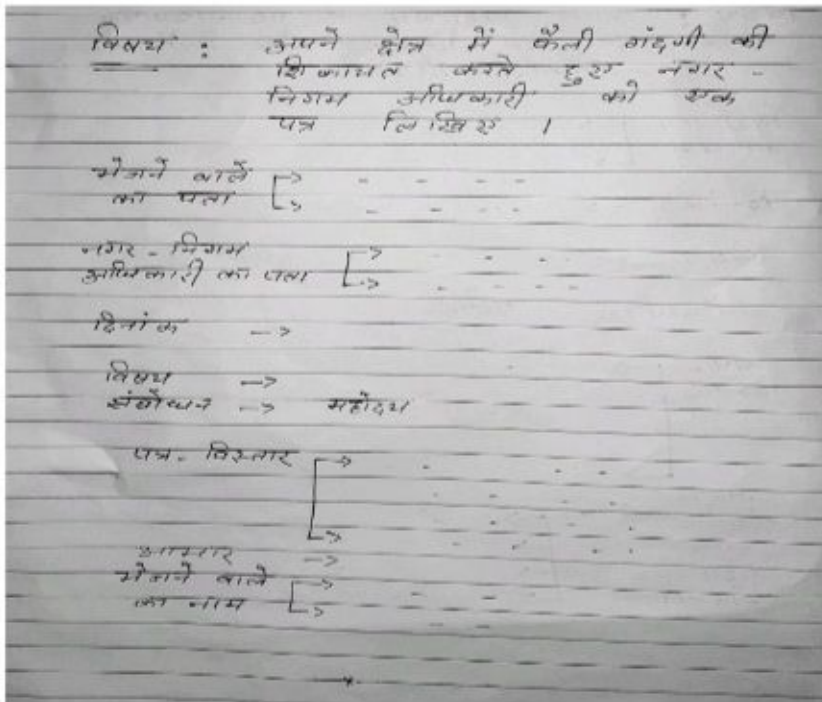 विषय : अपने क्षेत्र में फैली गंदगी की
शिकायत करते हुए नगर -
निगम अधिकारी को एक
पत्र लिखिए ।
भेजने वाले → - - - -
का पता → - - - -
नगर - निगम → - - -
अधिकारी का पता → - - -
दिनांक →
विषय →
संबोधन → महोदय
पत्र - विस्तार →
→
आभार →
भेजने वाले → - - -
का नाम → - -